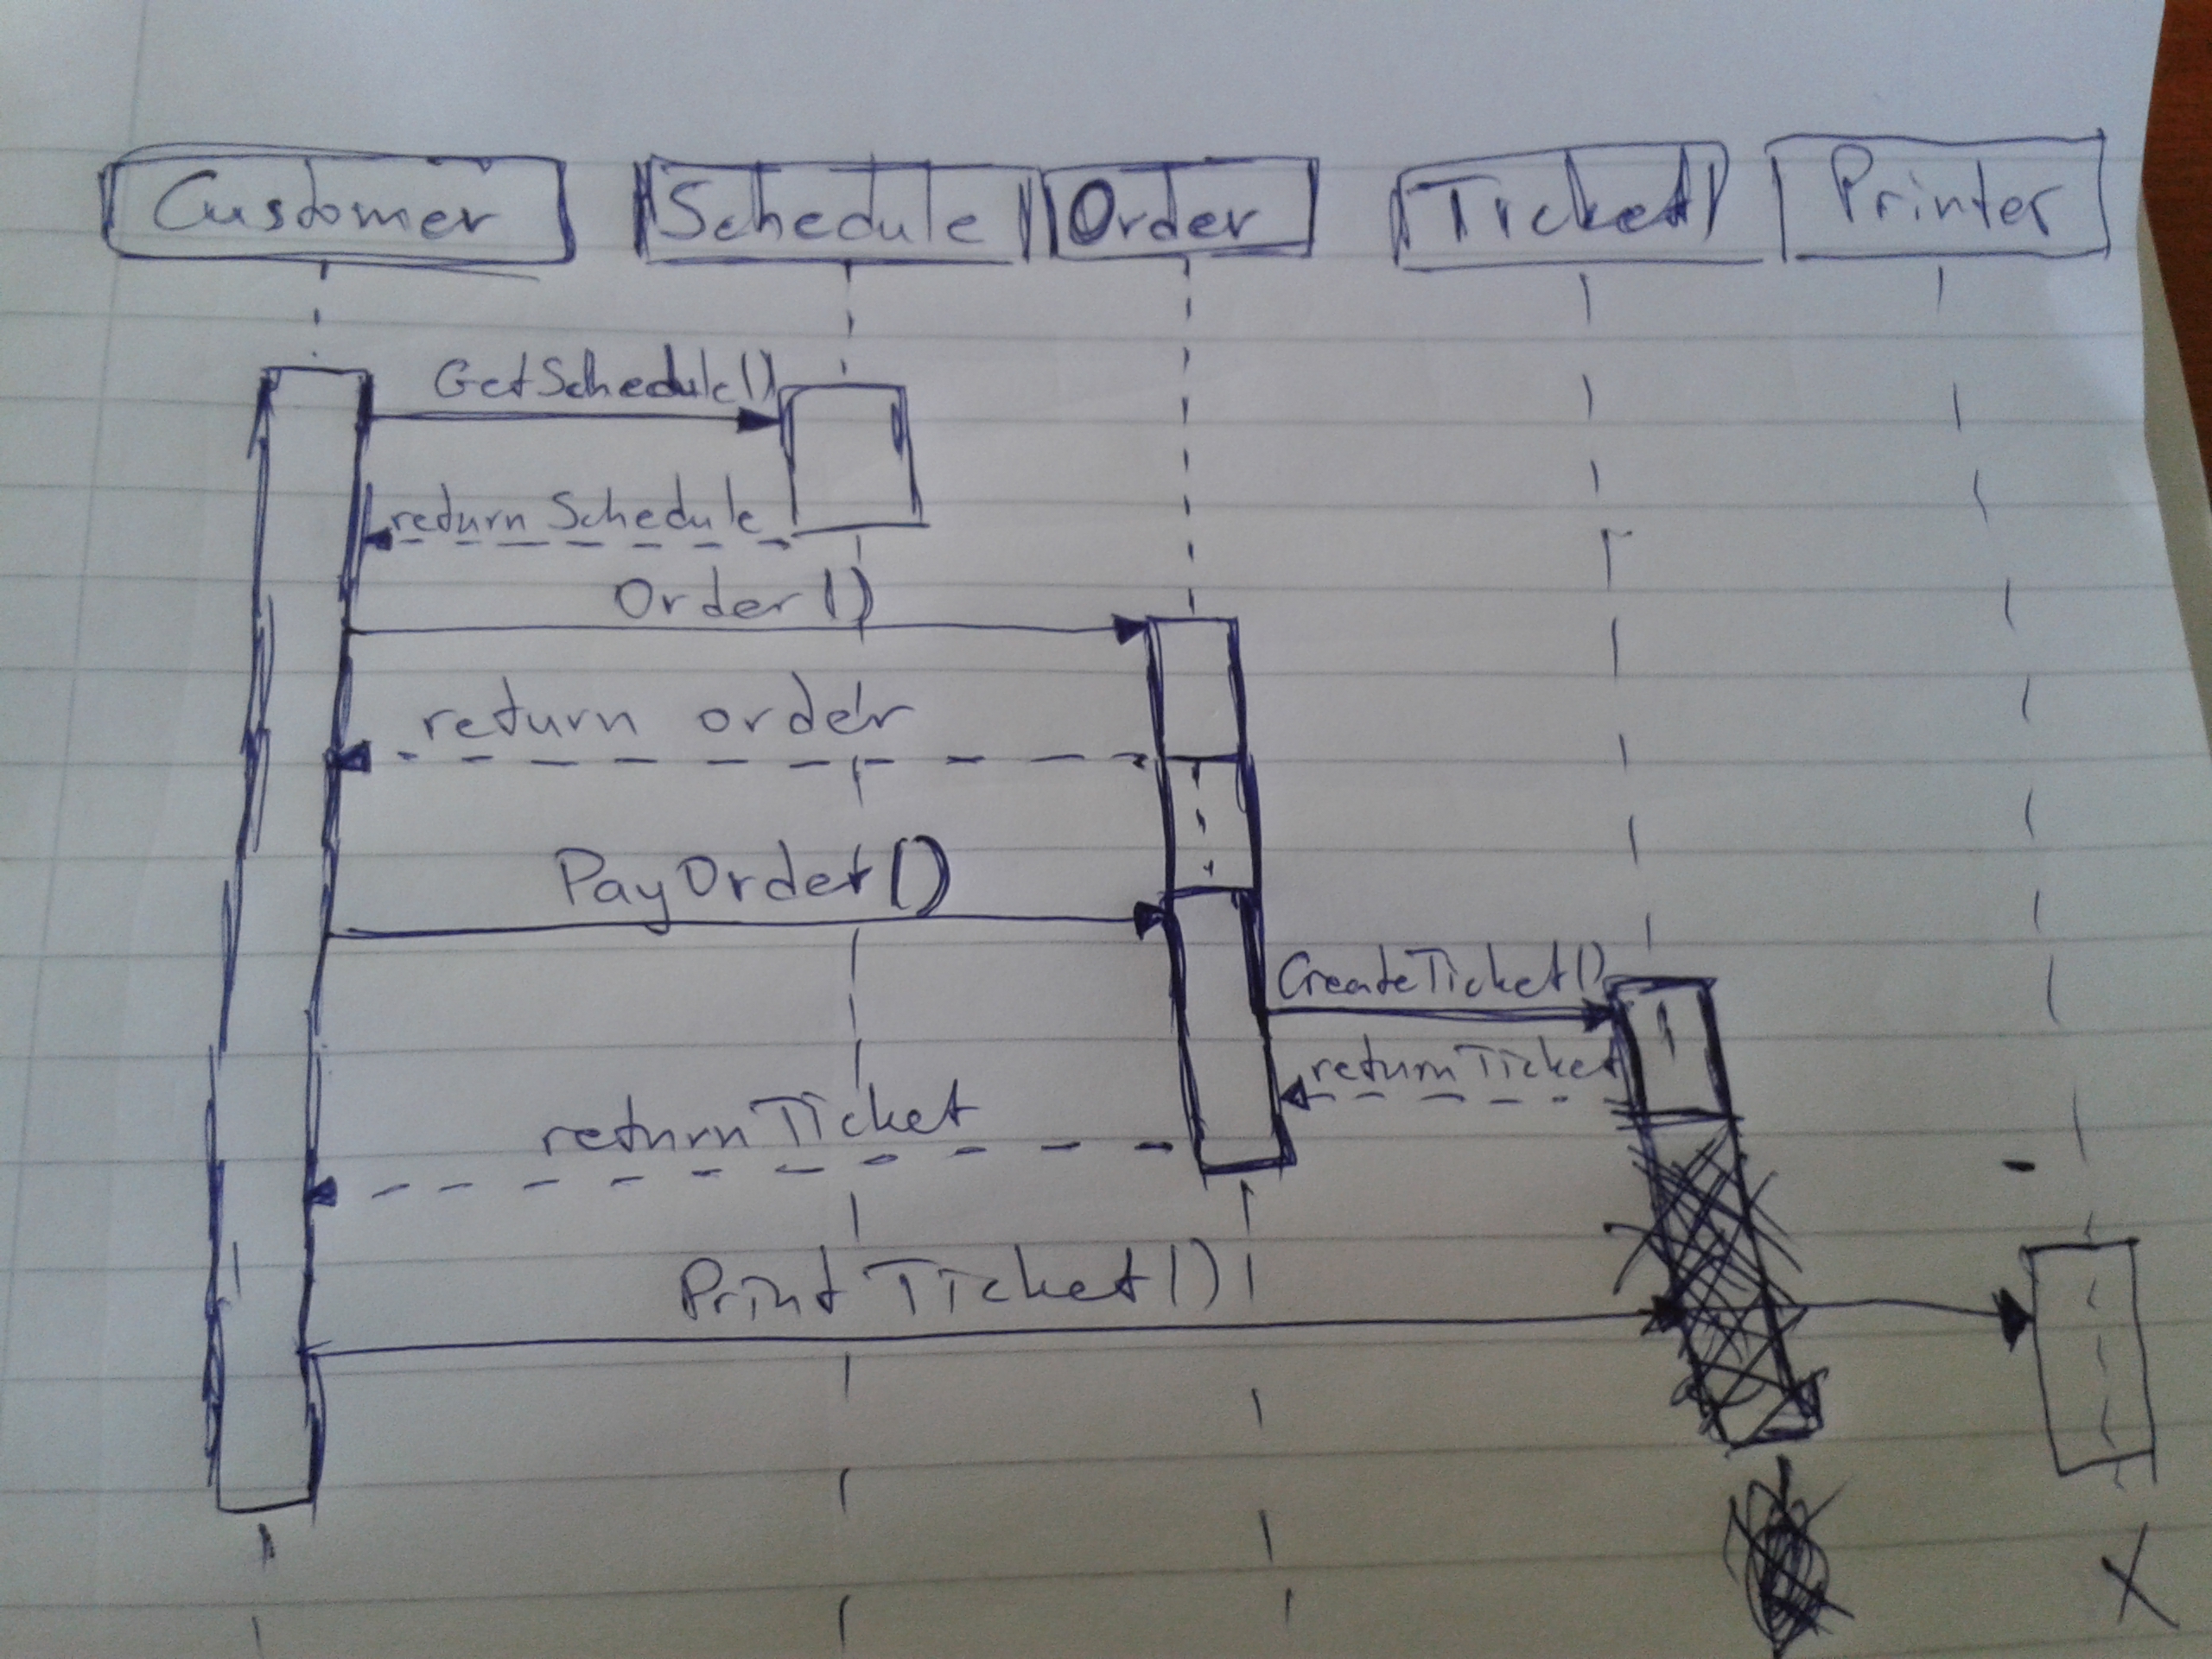 Customer
Schedule
Order
Ticket
Printer
GetSchedule()
return Schedule
Order()
return order
PayOrder()
CreateTicket()
returnTicket
returnTicket
PrintTicket()